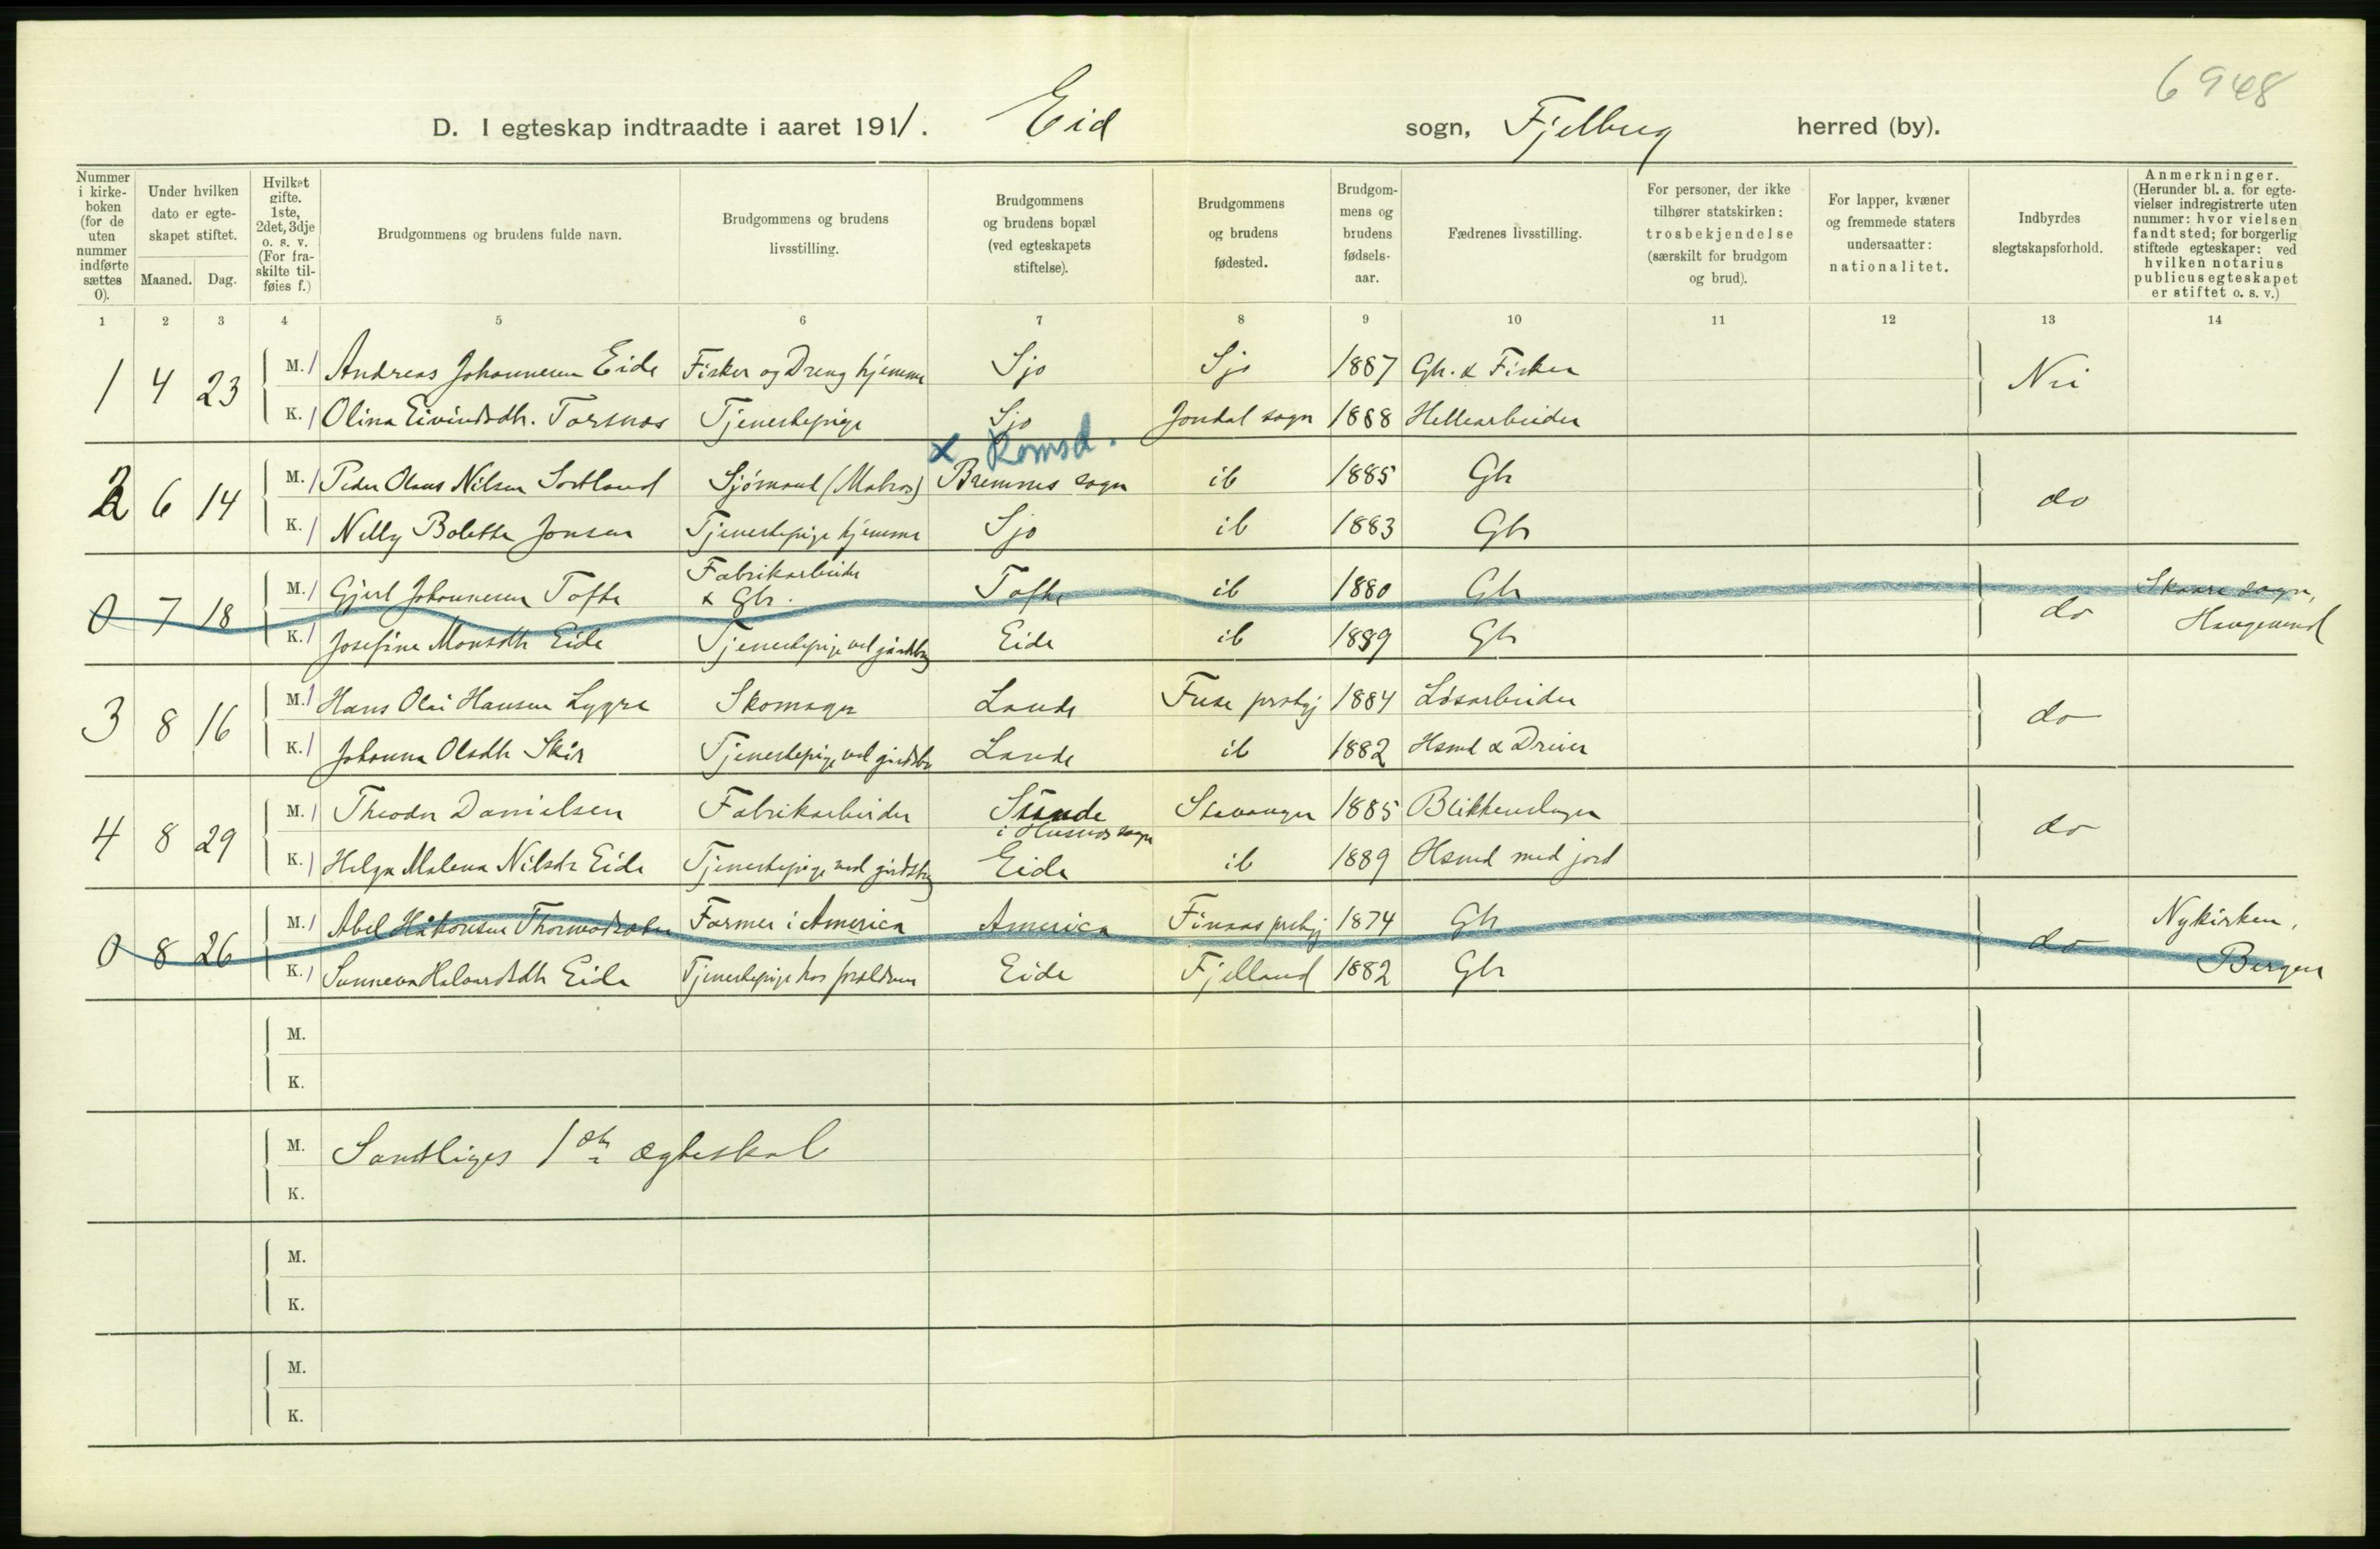 6948
D. I egteskap indtraadte i aaret 1911. Eid sogn, Fjelberg herred (by).
Nummer i kirke- boken (for de uten nummer indførte sættes 0).
Under hvilken dato er egte- skapet stiftet.
Maaned. Dag.
Hvilket gifte. 1ste, 2det, 3dje o. s. v. (For fra- skilte til- føies f.)
Brudgommens og brudens fulde navn.
Brudgommens og brudens livsstilling.
Brudgommens og brudens bopæl (ved egteskapets stiftelse).
Brudgommens og brudens fødested.
Brudgom- mens og brudens fødsels- aar.
Fædrenes livsstilling.
For personer, der ikke tilhører statskirken: trosbekjendelse (særskilt for brudgom og brud).
For lapper, kvæner og fremmede staters undersaatter: nationalitet.
Indbyrdes slegtskapsforhold.
Anmerkninger. (Herunder bl. a. for egte- vielser indregistrerte uten nummer: hvor vielsen fandt sted; for borgerlig stiftede egteskaper: ved hvilken notarius publicus egteskapet er stiftet o. s. v.)
1 2 3 4 5 6 7 8 9 10 11 12 13 14
1 4 23 M. 1 Andreas Johannesen Eide Fisker og Dreng hjemme Sjo Sjo 1887 Gbr. & Fisker Nei
K. 1 Olina Eivindsdtr. Torsnes Tjenestepige Sjo Jondal sogn 1888 Hellearbeider
x Romsd.
2 6 14 M. 1 Peder Olaus Nilsen Sortland Sjömand (Matros) Bremnes sogn ib 1885 Gbr do
K. 1 Nelly Bolette Jonsen Tjenestepige hjemme Sjo ib 1883 Gbr
0 7 18 M. 1 Gjert Johannesen Tofte Fabrikarbeider & Gbr. Tofte ib 1880 Gbr do Skaare sogn, Haugesund
K. 1 Josefine Monsdtr Eide Tjenestepige ved gårdsbrug Eide ib 1889 Gbr
3 8 16 M. 1 Hans Olai Hansen Lygre Skomager Lande Fuse prstgj 1884 Lösarbeider do
K. 1 Johanna Olsdtr Skår Tjenestepige ved gårdsbr Lande ib 1882 Hsmd & Driver
4 8 29 M. 1 Theodor Danielsen Fabrikarbeider Sunde i Husnes sogn Stavanger 1885 Blikkenslager do
K. 1 Helga Malena Nilsdtr Eide Tjenestepige ved gårdsbrug Eide ib 1889 Hsmd med jord
0 8 26 M. 1 Abel Håkonsen Farmer i America America Finaas prstgj 1874 Gbr do Nykirken, Bergen
K. 1 Sunneva Halvardsdtr Eide Tjenestepige hos forældrene Eide Fjelland 1882 Gbr
M.
K.
M. Samtliges 1ste ægteskab
K.
M.
K.
M.
K.